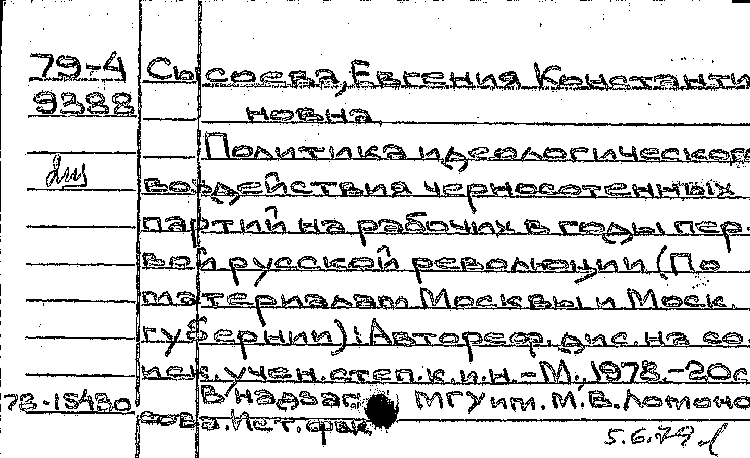 79-4 Сысоева, Евгения Константи-
9388 новна
Политика идеологического
воздействия черносотенных
партий на рабочих в годы пер-
вой русской революции (По
материалам Москвы и Моск.
губернии): Автореф. дис. на со-
иск. учен. степ. к. и. н. - М., 1978. - 20с
78-15480 В надзаг МГУ им. М.В. Ломоно-
сова. Ист. фак
5.6.79